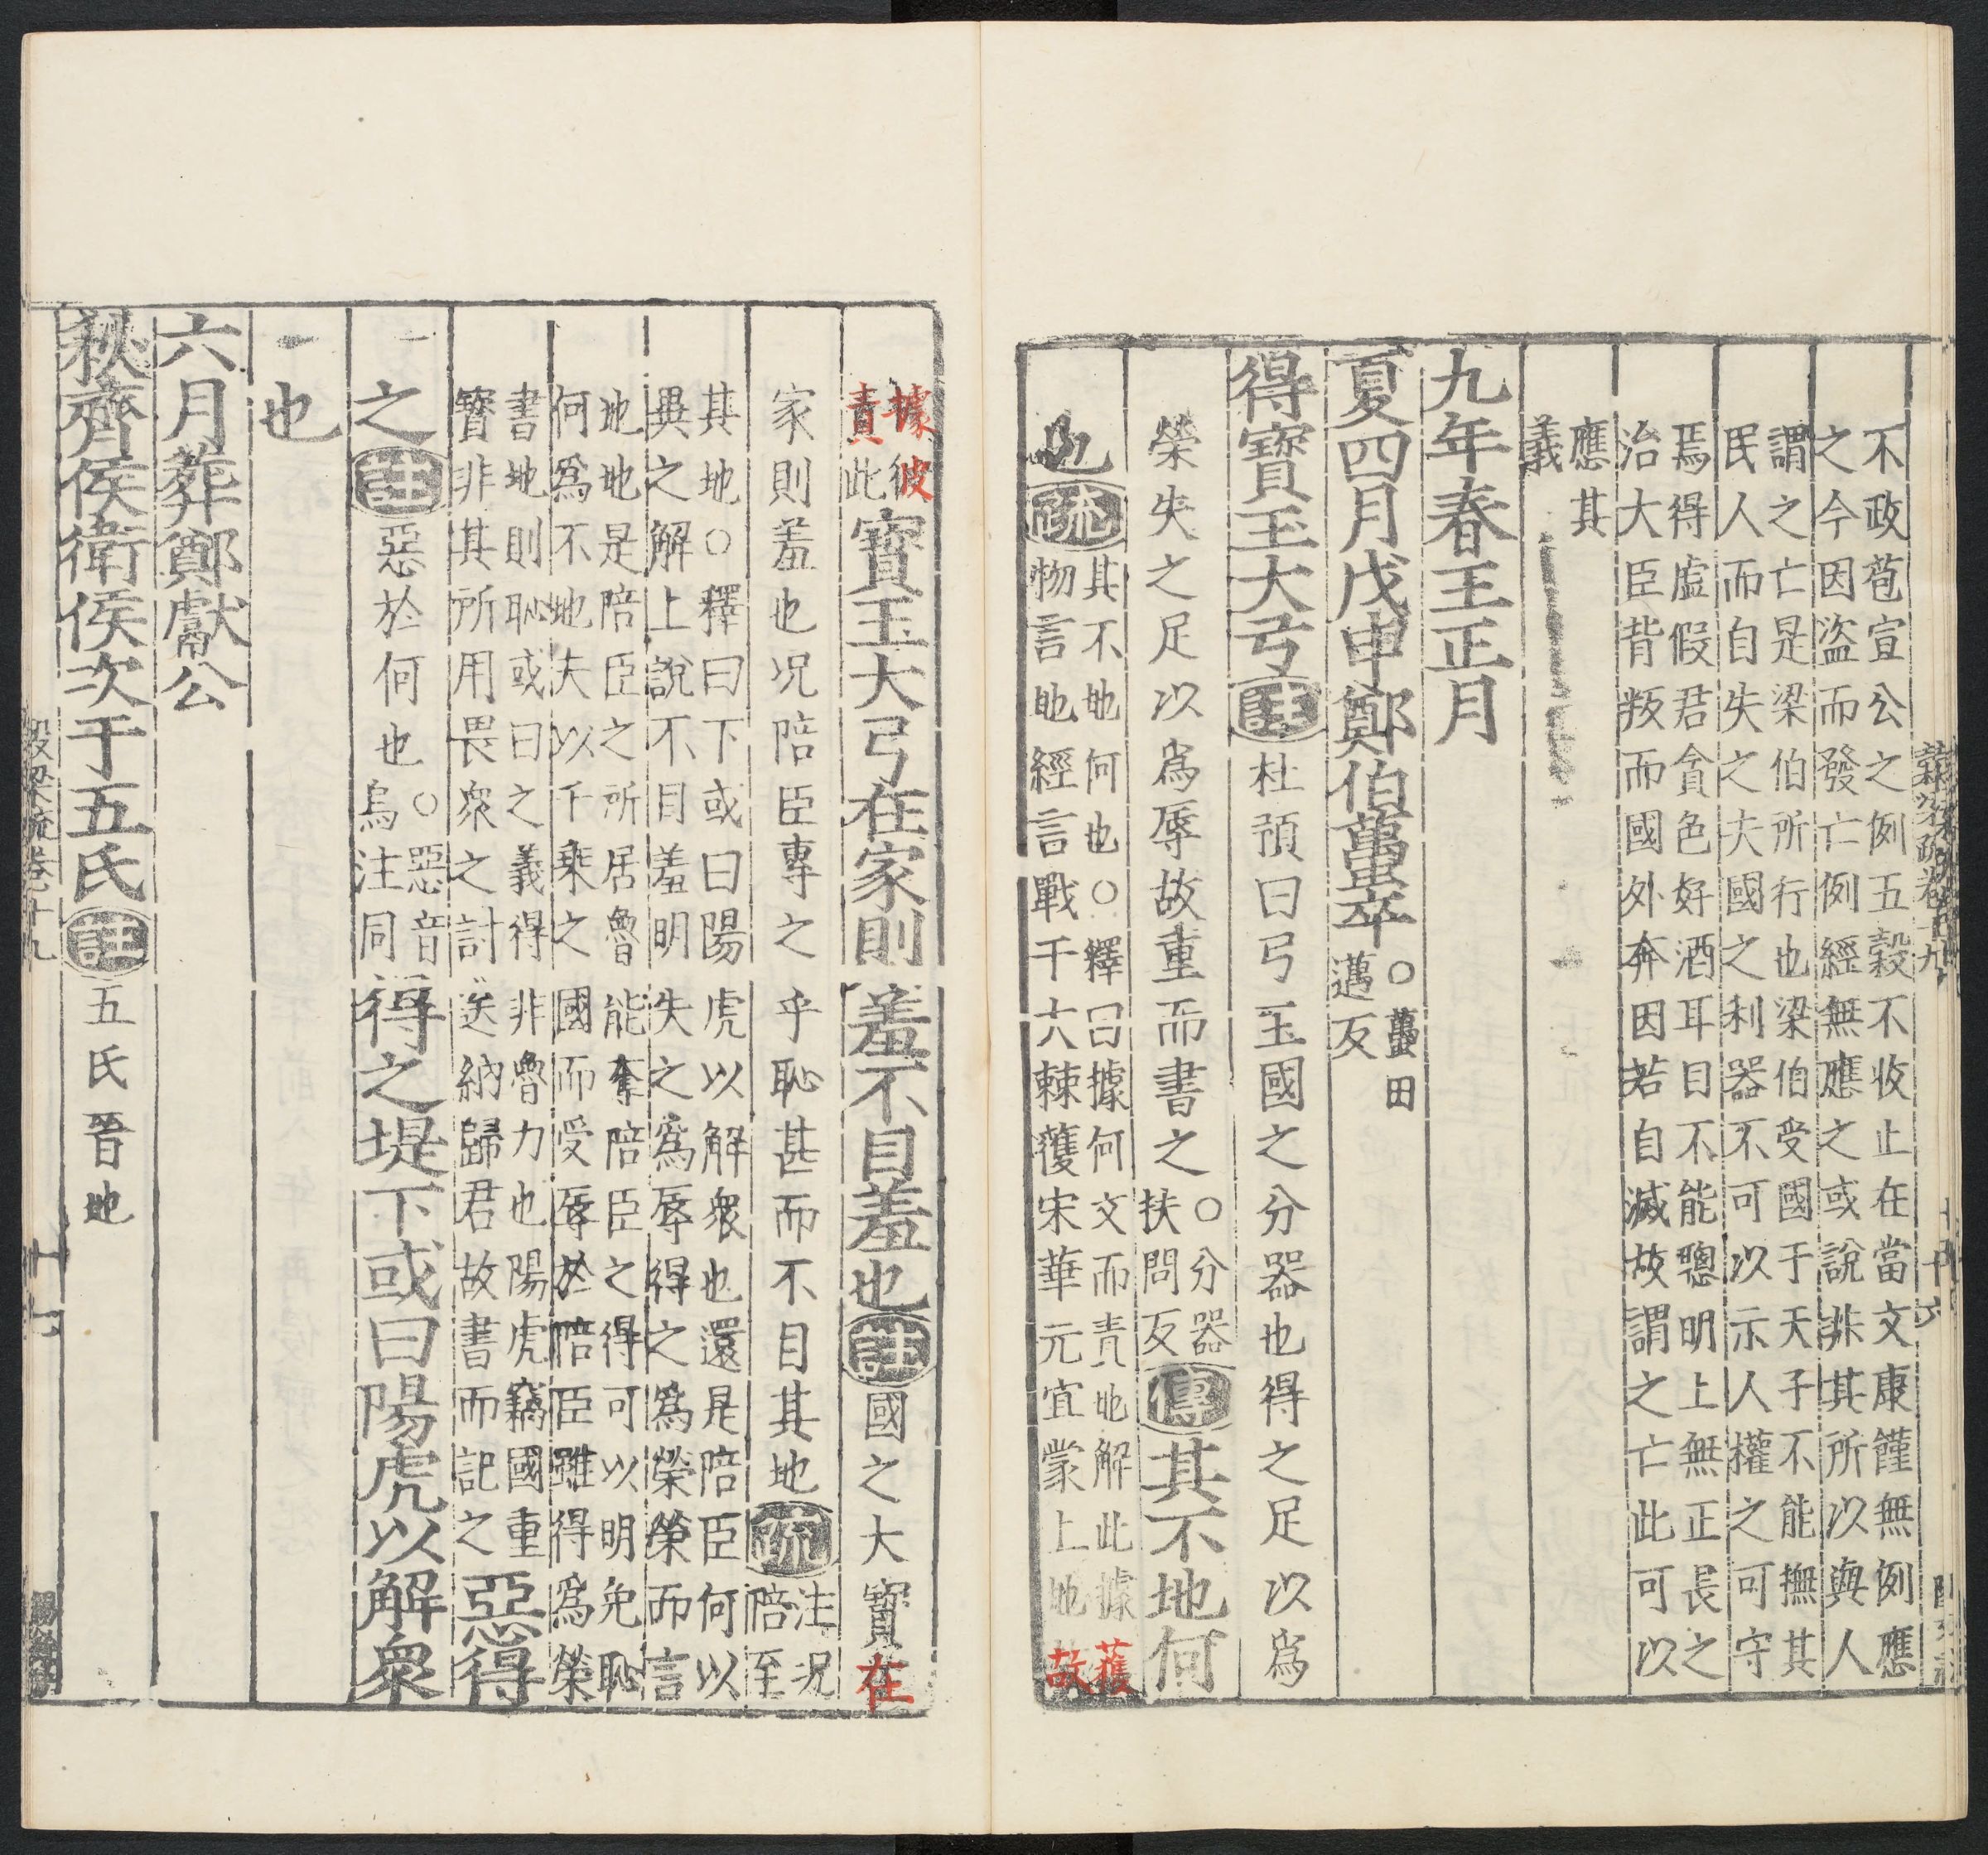 不政苞宣公之例五穀不收止在當文康饉無例應
之今因盜而發亡例經無應之或說非其所以與人
謂之亡是梁伯所行也梁伯受國于天子不能撫其
民人而自失之夫國之利器不可以示人權之可守
焉得虛假君貪色好酒耳目不能聽明上無正長之
治大臣背叛而國外奔因若自滅故謂之亡此可以
應其
義
九年春王正月
夏四月戊申鄭伯蠆卒○蠆田
邁反
得寶玉大弓註杜預曰弓玉國之分器也得之足以爲
榮失之足以爲辱故重而書之○分器
扶問反傳其不地何
也疏其不地何也○釋曰據何文而責地解此據獲
物言地經言戰于大棘獲宋華元宜蒙上地故
據彼
責此寶玉大弓在家則羞不目羞也註國之大寶在
家則羞也況陪臣專之乎恥甚而不目其地疏注況
陪至
其地○釋曰下或曰陽虎以解衆也還是陪臣何以
異之解上說不目羞明失之爲辱得之爲榮榮而言
地地是陪臣之所居魯能奪陪臣之得可以明免恥
何爲不地夫以千乘之國而受辱於陪臣雖得爲榮
書地則恥或曰之義得非魯力也陽虎竊國重
寶非其所用畏衆之討送納歸君故書而記之惡得
之註惡於何也○惡音
烏注同得之堤下或曰陽虎以解衆
也
六月葬鄭獻公
秋齊侯衛侯次于五氏註五氏晉地
穀梁疏卷十九
十七